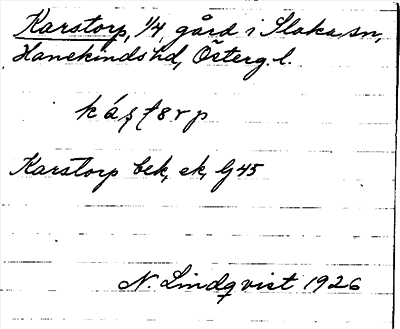 Karstorp, 1/4 gård i Slaka sn,
Hanekinds hd, Österg. l.
Karstorp bek, ek, Gj 45
N. Lindqvist 1926